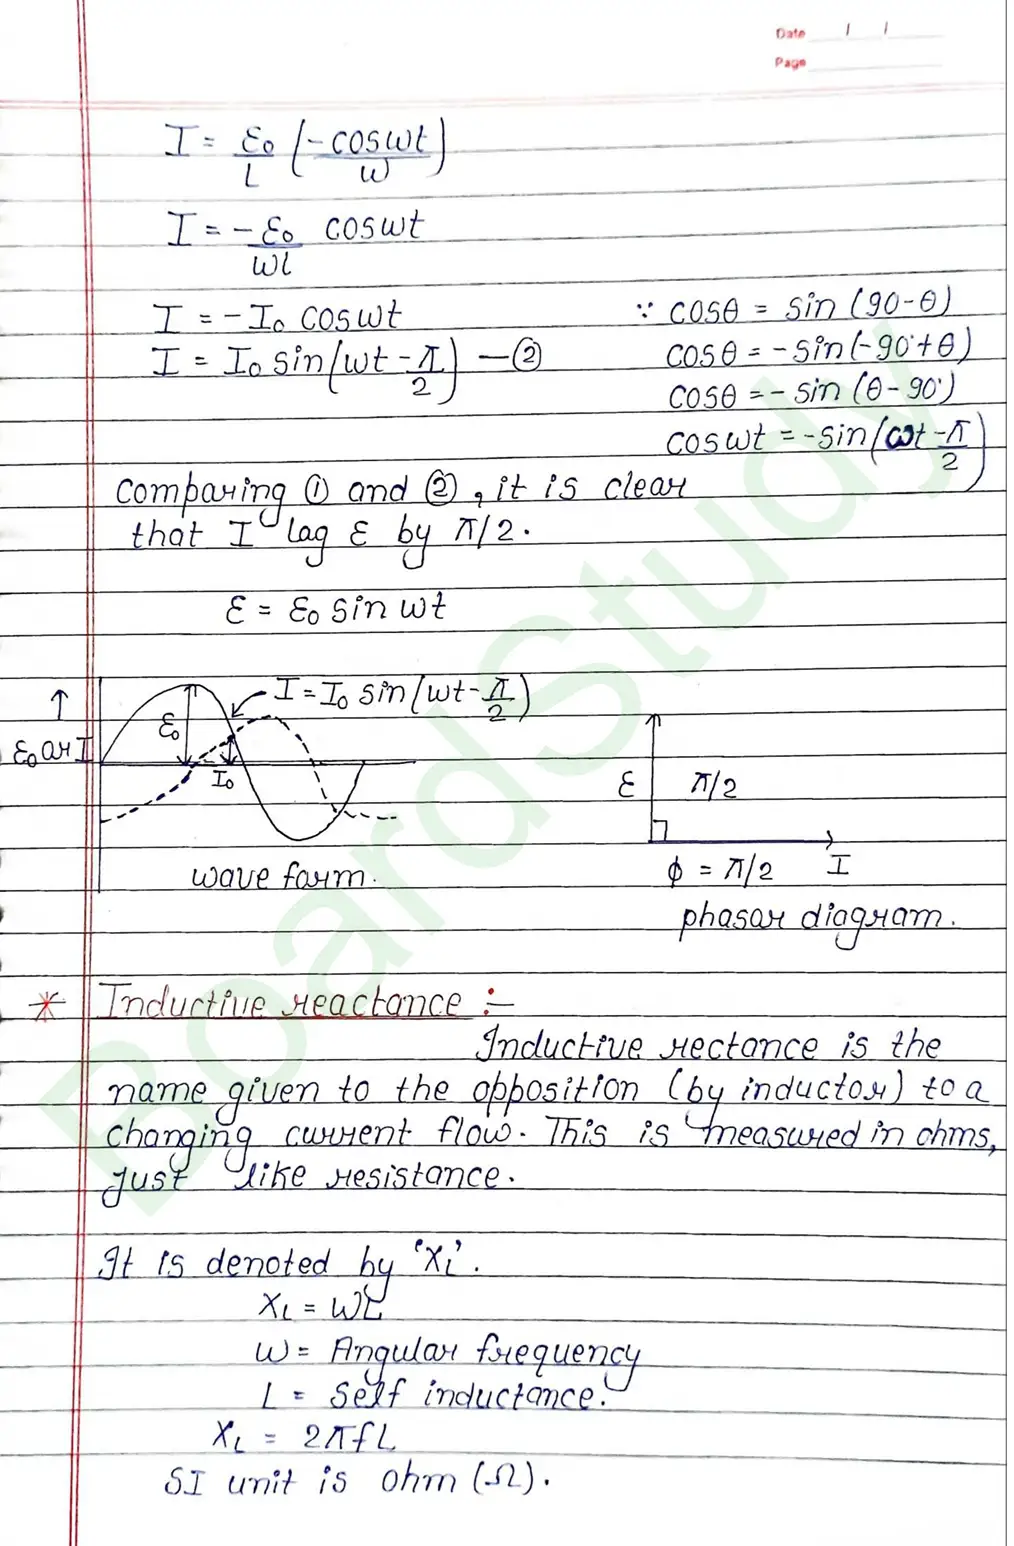 Date / /
Page
I = ε₀/L (-coswt/w)
I = -ε₀/wl coswt
I = -I₀ coswt
∵ cosθ = sin (90-θ)
I = I₀ sin(wt - π/2) —②
cosθ = -sin(-90°+θ)
cosθ = - sin (θ-90°)
coswt = -sin(ωt - π/2)
Comparing ① and ②, it is clear
that I lag ε by π/2.
ε = ε₀ sin wt
I = I₀ sin(wt - π/2)
ε₀
ε₀ or I
I₀
ε π/2
wave form.
ϕ = π/2 I
phasor diagram.
* Inductive reactance :-
Inductive rectance is the
name given to the opposition (by inductor) to a
changing current flow. This is measured in ohms,
just like resistance.
It is denoted by 'X_L'.
X_L = wL
w = Angular frequency
L = Self inductance.
X_L = 2πfL
SI unit is ohm (Ω).
BoardStudy